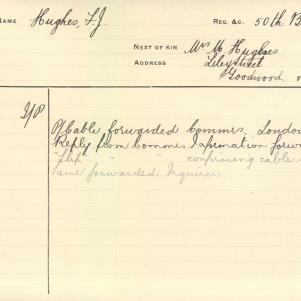 NAME Hughes, F.J. REG. &C. 50th B
NEXT OF KIN Mrs M. Hughes
ADDRESS Liley Street
Goodwood
Cable forwarded Commrs. London
Reply from Commrs Information forwa
"        "        confirming cable
Same forwarded Inquirer.